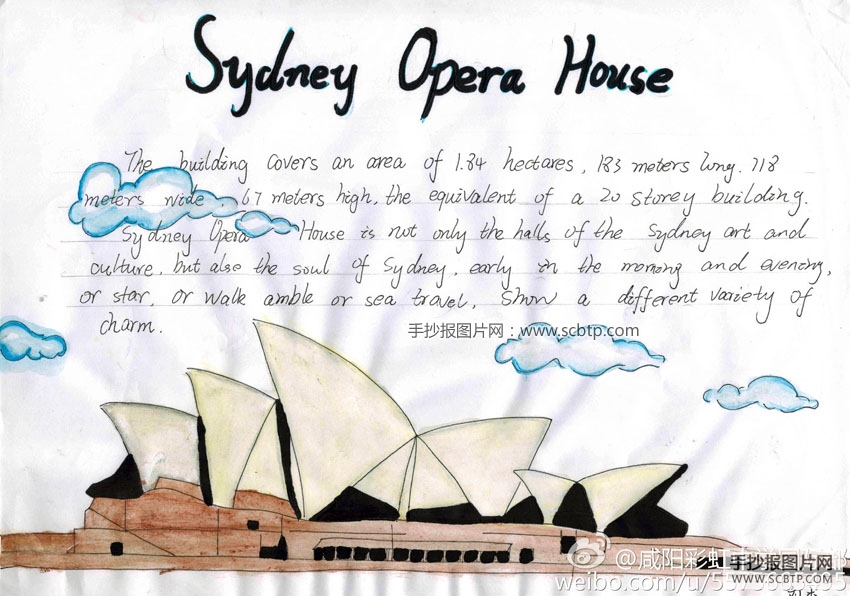 Sydney Opera House
The building covers an area of 1.84 hectares, 183 meters long. 118
meters wide 67 meters high, the equivalent of a 20 storey building.
Sydney Opera House is not only the halls of the Sydney art and
culture, but also the soul of Sydney, early in the morning and evening,
or star, or walk amble or sea travel, show a different variety of
charm.
手抄报图片网：www.scbtp.com
@咸阳彩虹
weibo.com/u/55
手抄报图片网
WWW.SCBTP.COM